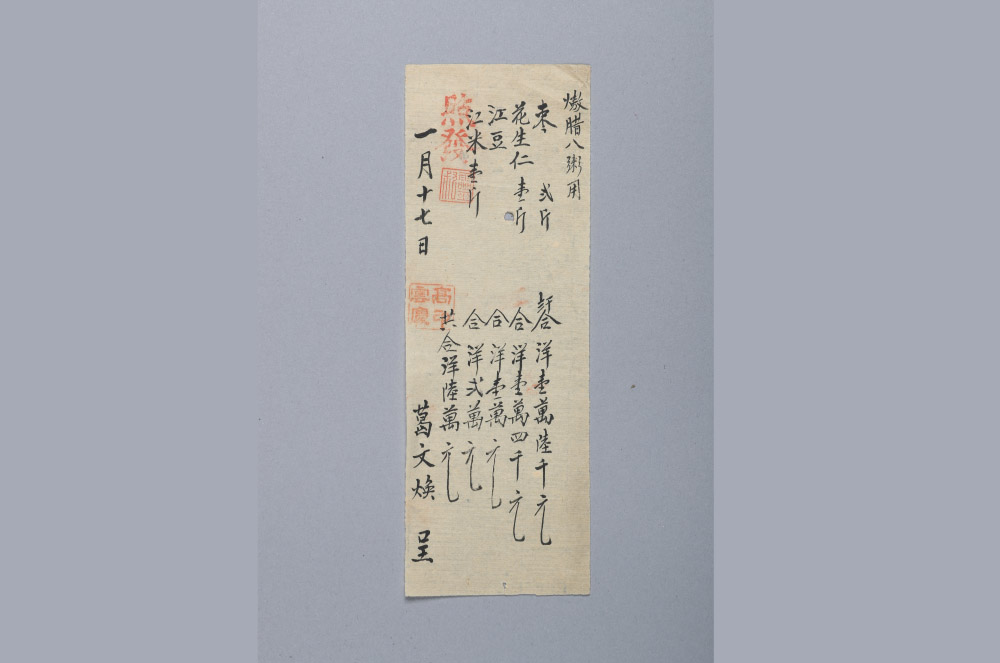 熬腊八粥用
枣 弍斤 計合洋壹萬陸千元
花生仁 壹斤 合洋壹萬四千元
江豆 合洋壹萬元
江米壹斤 合洋弍萬元
共合洋陸萬元
一月十七日 葛文焕 呈
照發